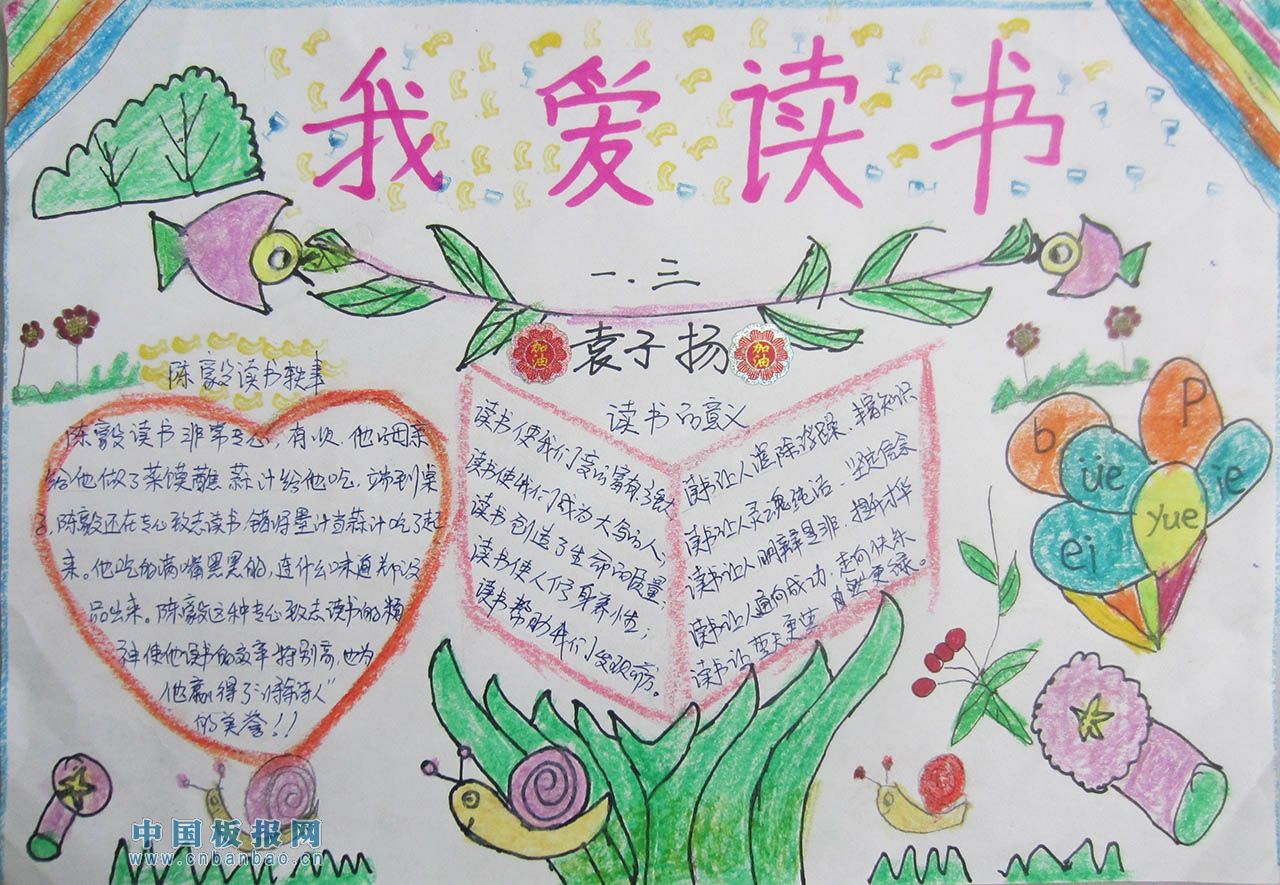 我爱读书
一.三
加油
袁子扬
加油
陈毅读书轶事
陈毅读书非常专心,有次,他的母亲
给他做了菜馍蘸蒜汁给他吃,端到桌
陈毅还在专心致志读书,错将墨汁当蒜汁吃了起
来。他吃的满嘴黑黑的,连什么味道都没
品出来。陈毅这种专心致志读书的精
神使他读书的效率特别高,也为
他赢得了
的美誉!!
读书的意义
读书使我们变的富有了
读书使我们成为大写的人;
读书创造了生命的质量;
读书使人修身养性;
读书帮助我们发现
读书让人消除浮躁、丰富知识
读书让人灵魂纯洁、坚定信念
读书让人明辨是非、提升才华
读书让人通向成功,走向快乐
读书让蓝天更蓝 自然更绿。
b
P
üe
ie
ei
yue
中国板报网
www.cnbanbao.cn